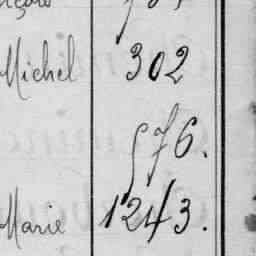 Michel 302
576.
Marie 1243.